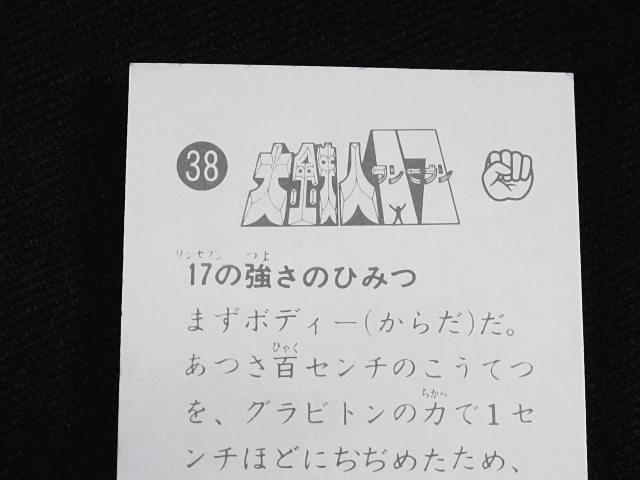 38
大鉄人17
ワンセブン
ワンセブン つよ
17の強さのひみつ
まずボディー(からだ)だ。
ひゃく
あつさ百センチのこうてつ
ちから
を、グラビトンの力で1セ
ンチほどにちぢめたため、